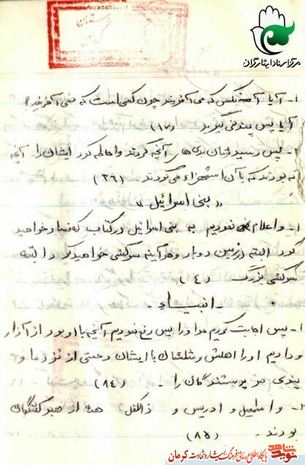 مرکز اسناد ایثارگران
۱- آیا آنکس که می آفریند چون کسی است که نمی آفریند
آیا پس پند نمی گیرید (۱۷)
۲- پس رسید ایشان را بدی های آنچه کردند و احاطه کرد ایشان را آنچه
که بودند که با آن استهزاء می کردند (۳۴)
« بنی اسرائیل »
و اعلام نمودیم به بنی اسرائیل در کتاب که فساد خواهید
کرد البته در زمین دو بار و هر آینه سرکشی خواهید کرد البته
سرکشی بزرگ (۴)
انبیاء
۱- پس اجابت کردیم مر او را پس رفع نمودیم آنچه با او بود از آزار
و دادیم او را اهلش و مثلشان با ایشان رحمتی از نزد ما و
پندی مر پرستندگان را - (۸۴)
۲- و اسمعیل و ادریس و ذا الکفل همه از صبر کنندگان
بودند - (۸۵)